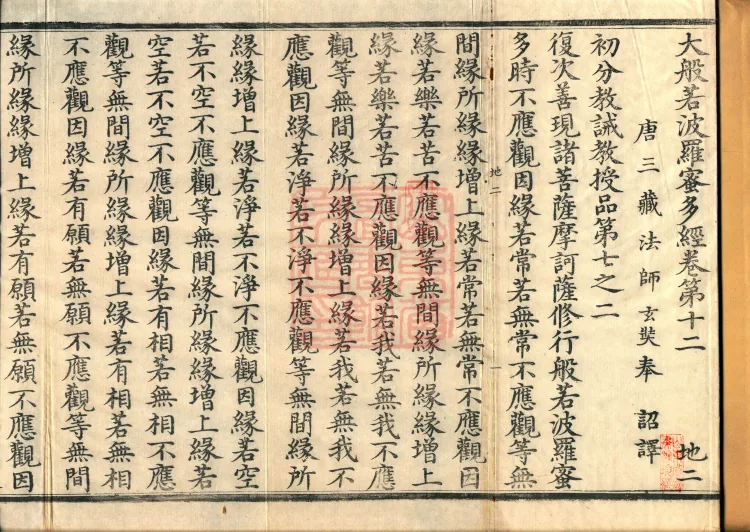 大般若波羅蜜多經卷第十二 地二
唐三藏法師玄奘奉 詔譯
初分教誡教授品第七之二
復次善現諸菩薩摩訶薩修行般若波羅蜜
多時不應觀因緣若常若無常不應觀等無
地二 一
間緣所緣緣增上緣若常若無常不應觀因
緣若樂若苦不應觀等無間緣所緣緣增上
緣若樂若苦不應觀因緣若我若無我不應
觀等無間緣所緣緣增上緣若我若無我不
應觀因緣若淨若不淨不應觀等無間緣所
緣緣增上緣若淨若不淨不應觀因緣若空
若不空不應觀等無間緣所緣緣增上緣若
空若不空不應觀因緣若有相若無相不應
觀等無間緣所緣緣增上緣若有相若無相
不應觀因緣若有願若無願不應觀等無間
緣所緣緣增上緣若有願若無願不應觀因